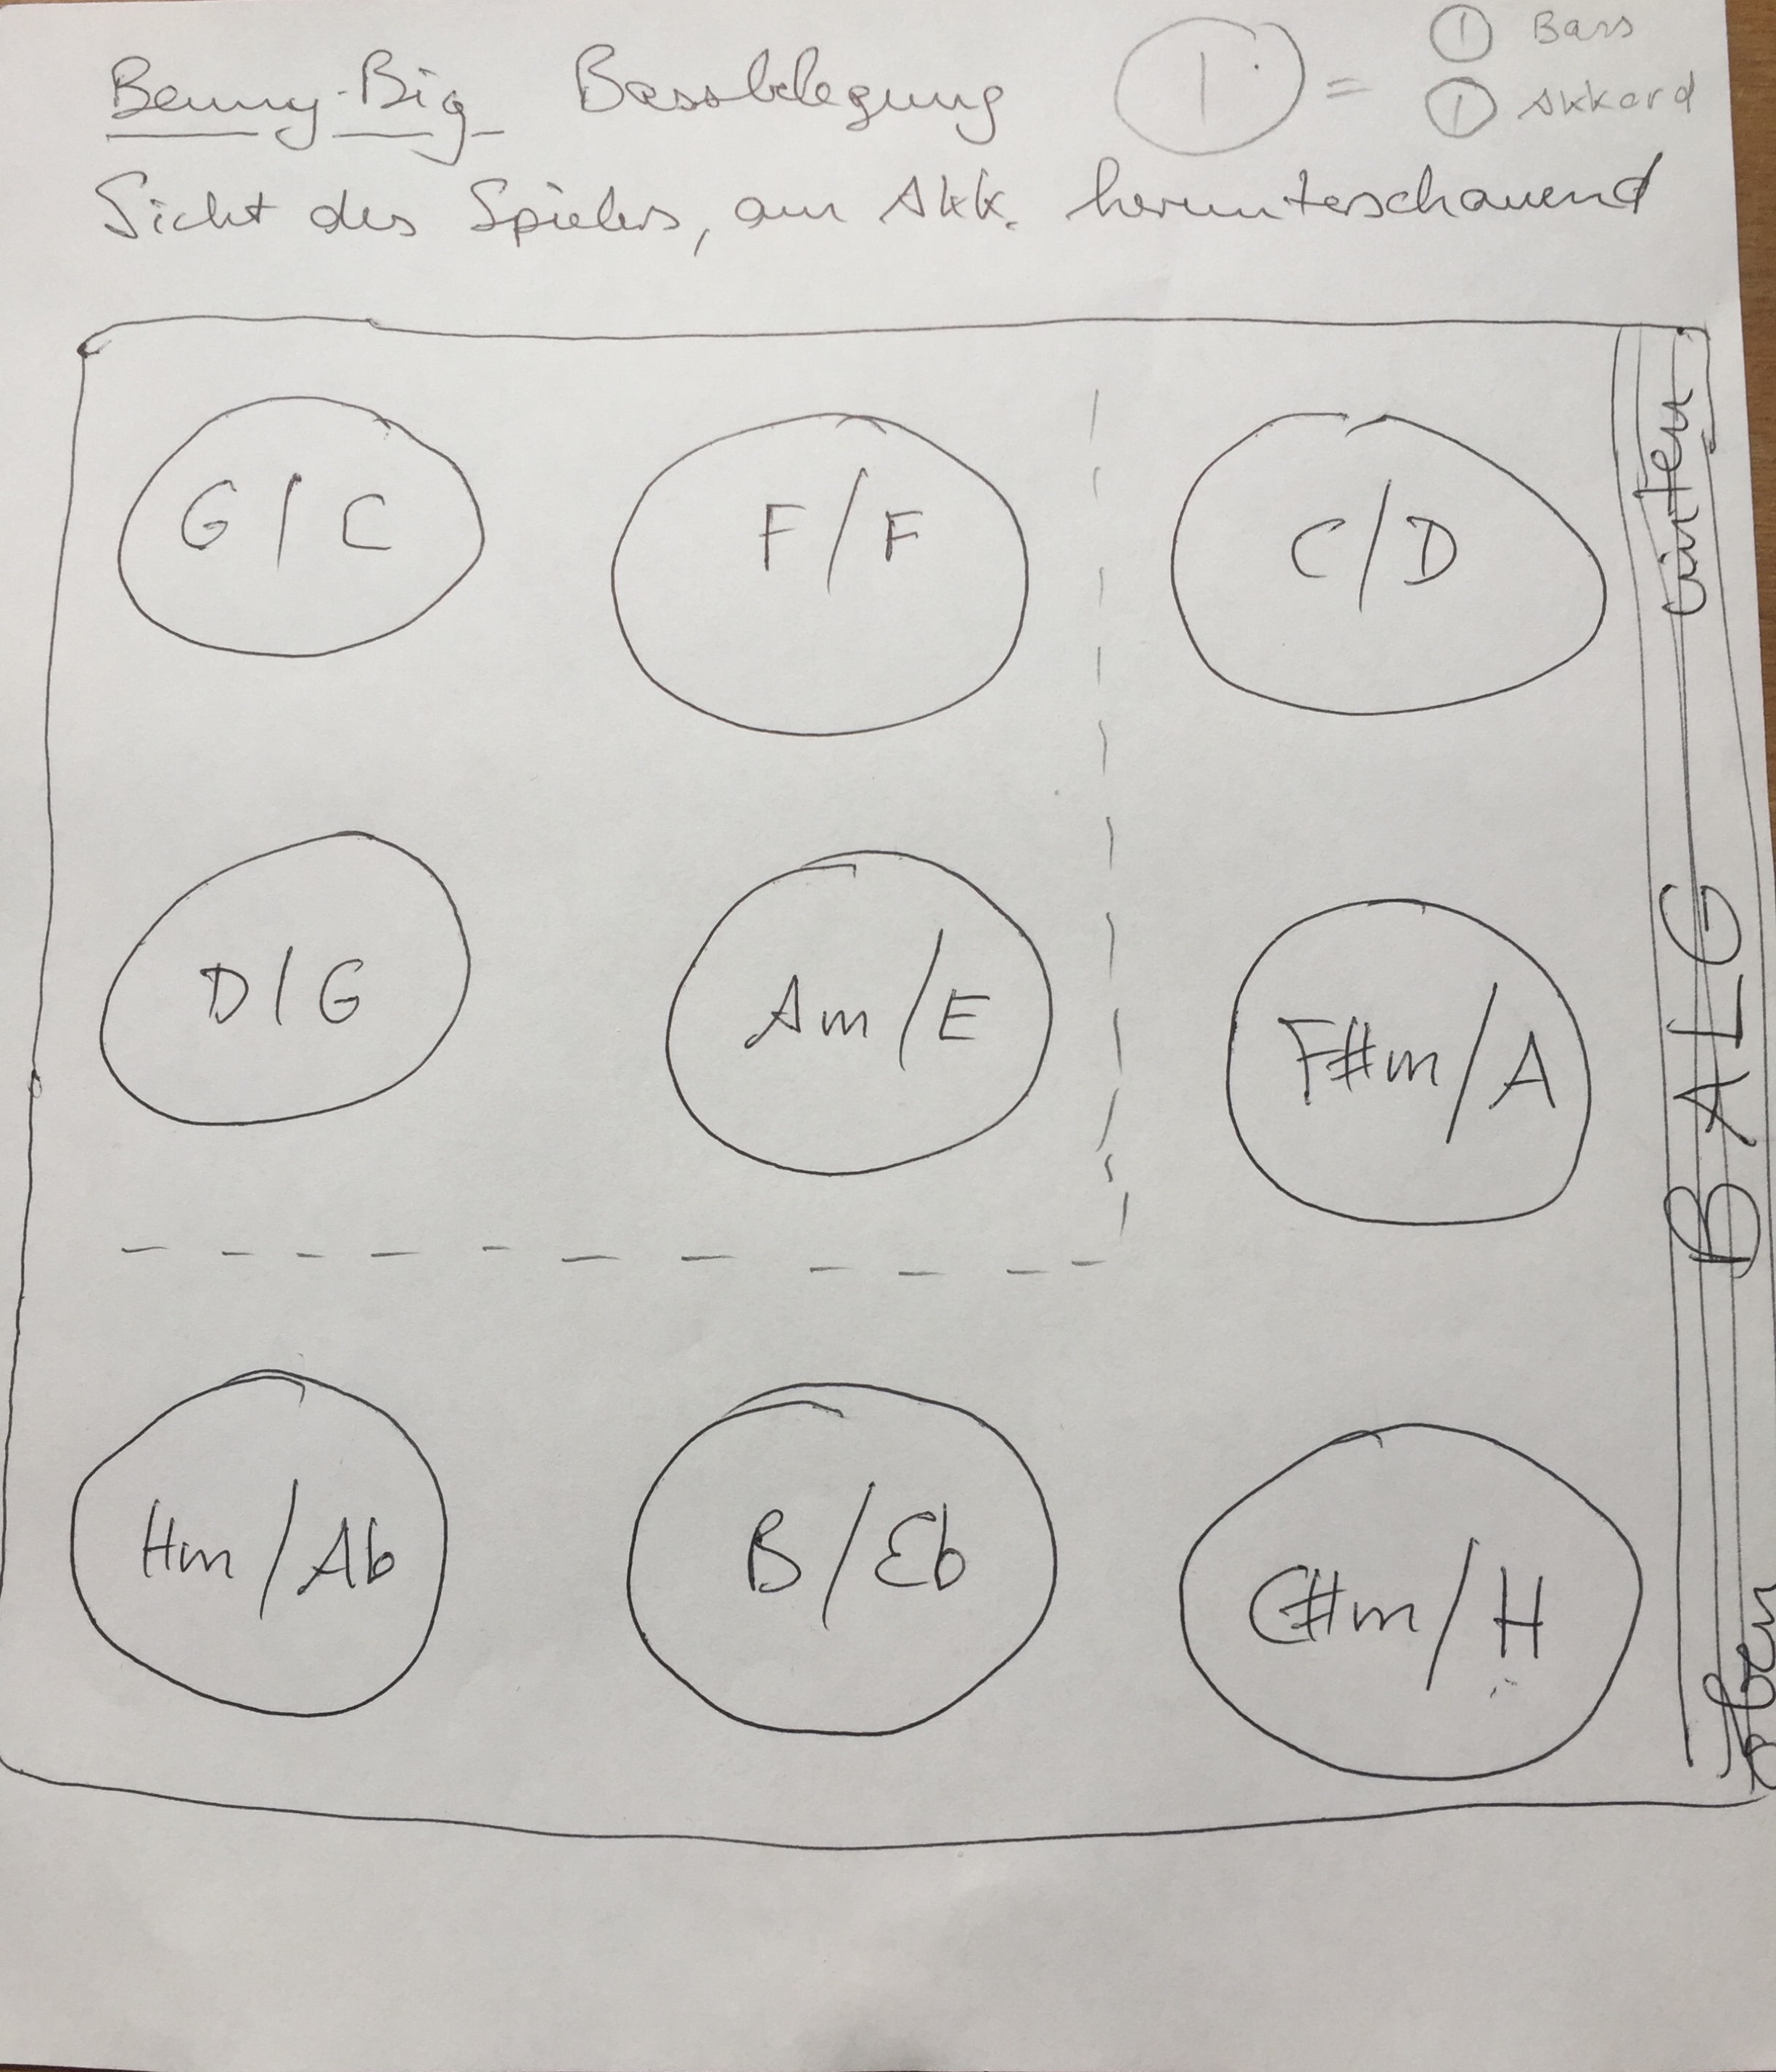 Benny-Big Bassbelegung | = | Bass
| Akkord
Sicht des Spielers, am Akk. herunterschauend
G/C F/F C/D
unten
D/G Am/E F#m/A
BALG
Hm/Ab B/Eb C#m/H
oben